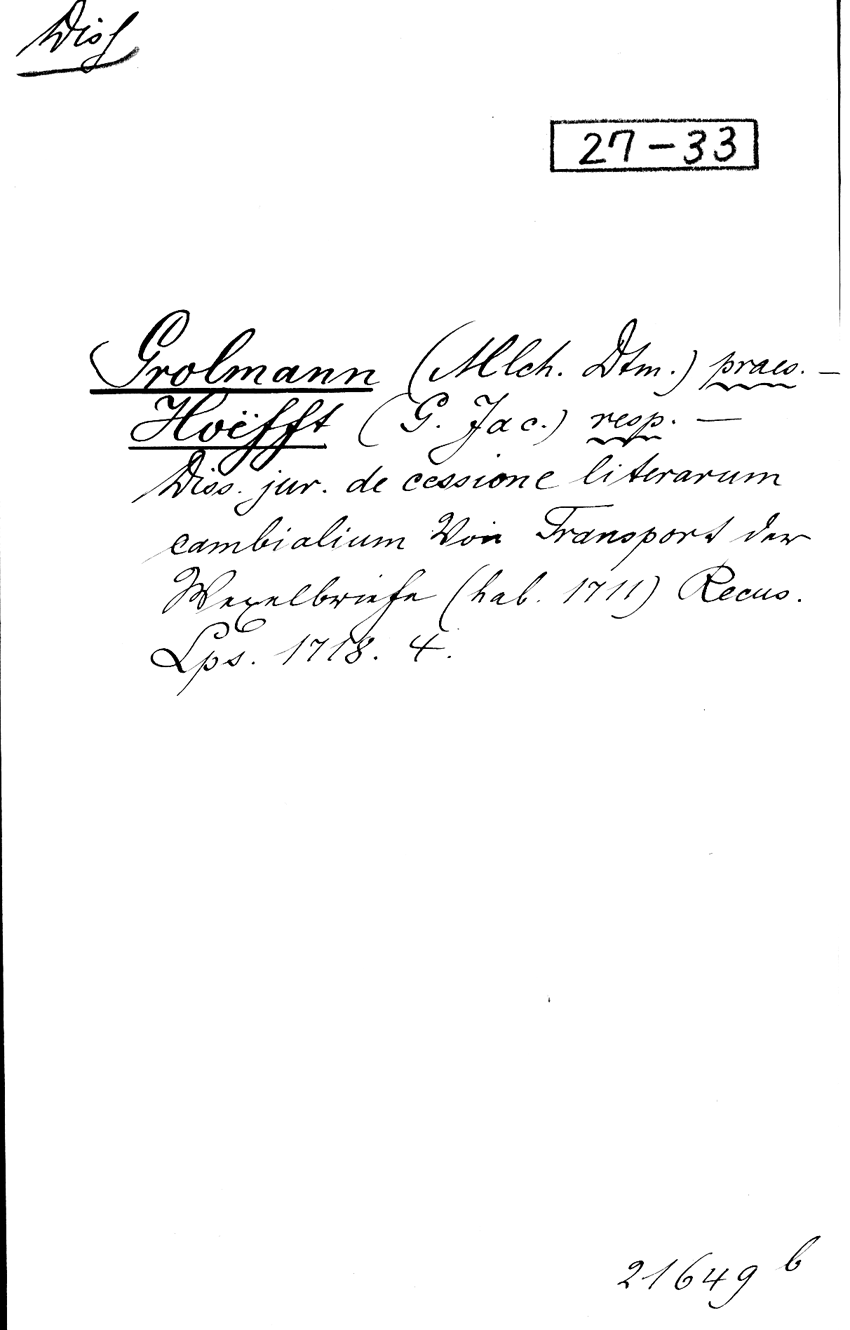 Diss
27-33
Grolmann (Mlch. Dtm.) praes. —
Hoëfft (G. Jac.) resp. —
Diss. jur. de cessione literarum
cambialium Von Transport der
Wexelbriefe (hab. 1711) Recus.
Lps. 1718. 4.
21649 b